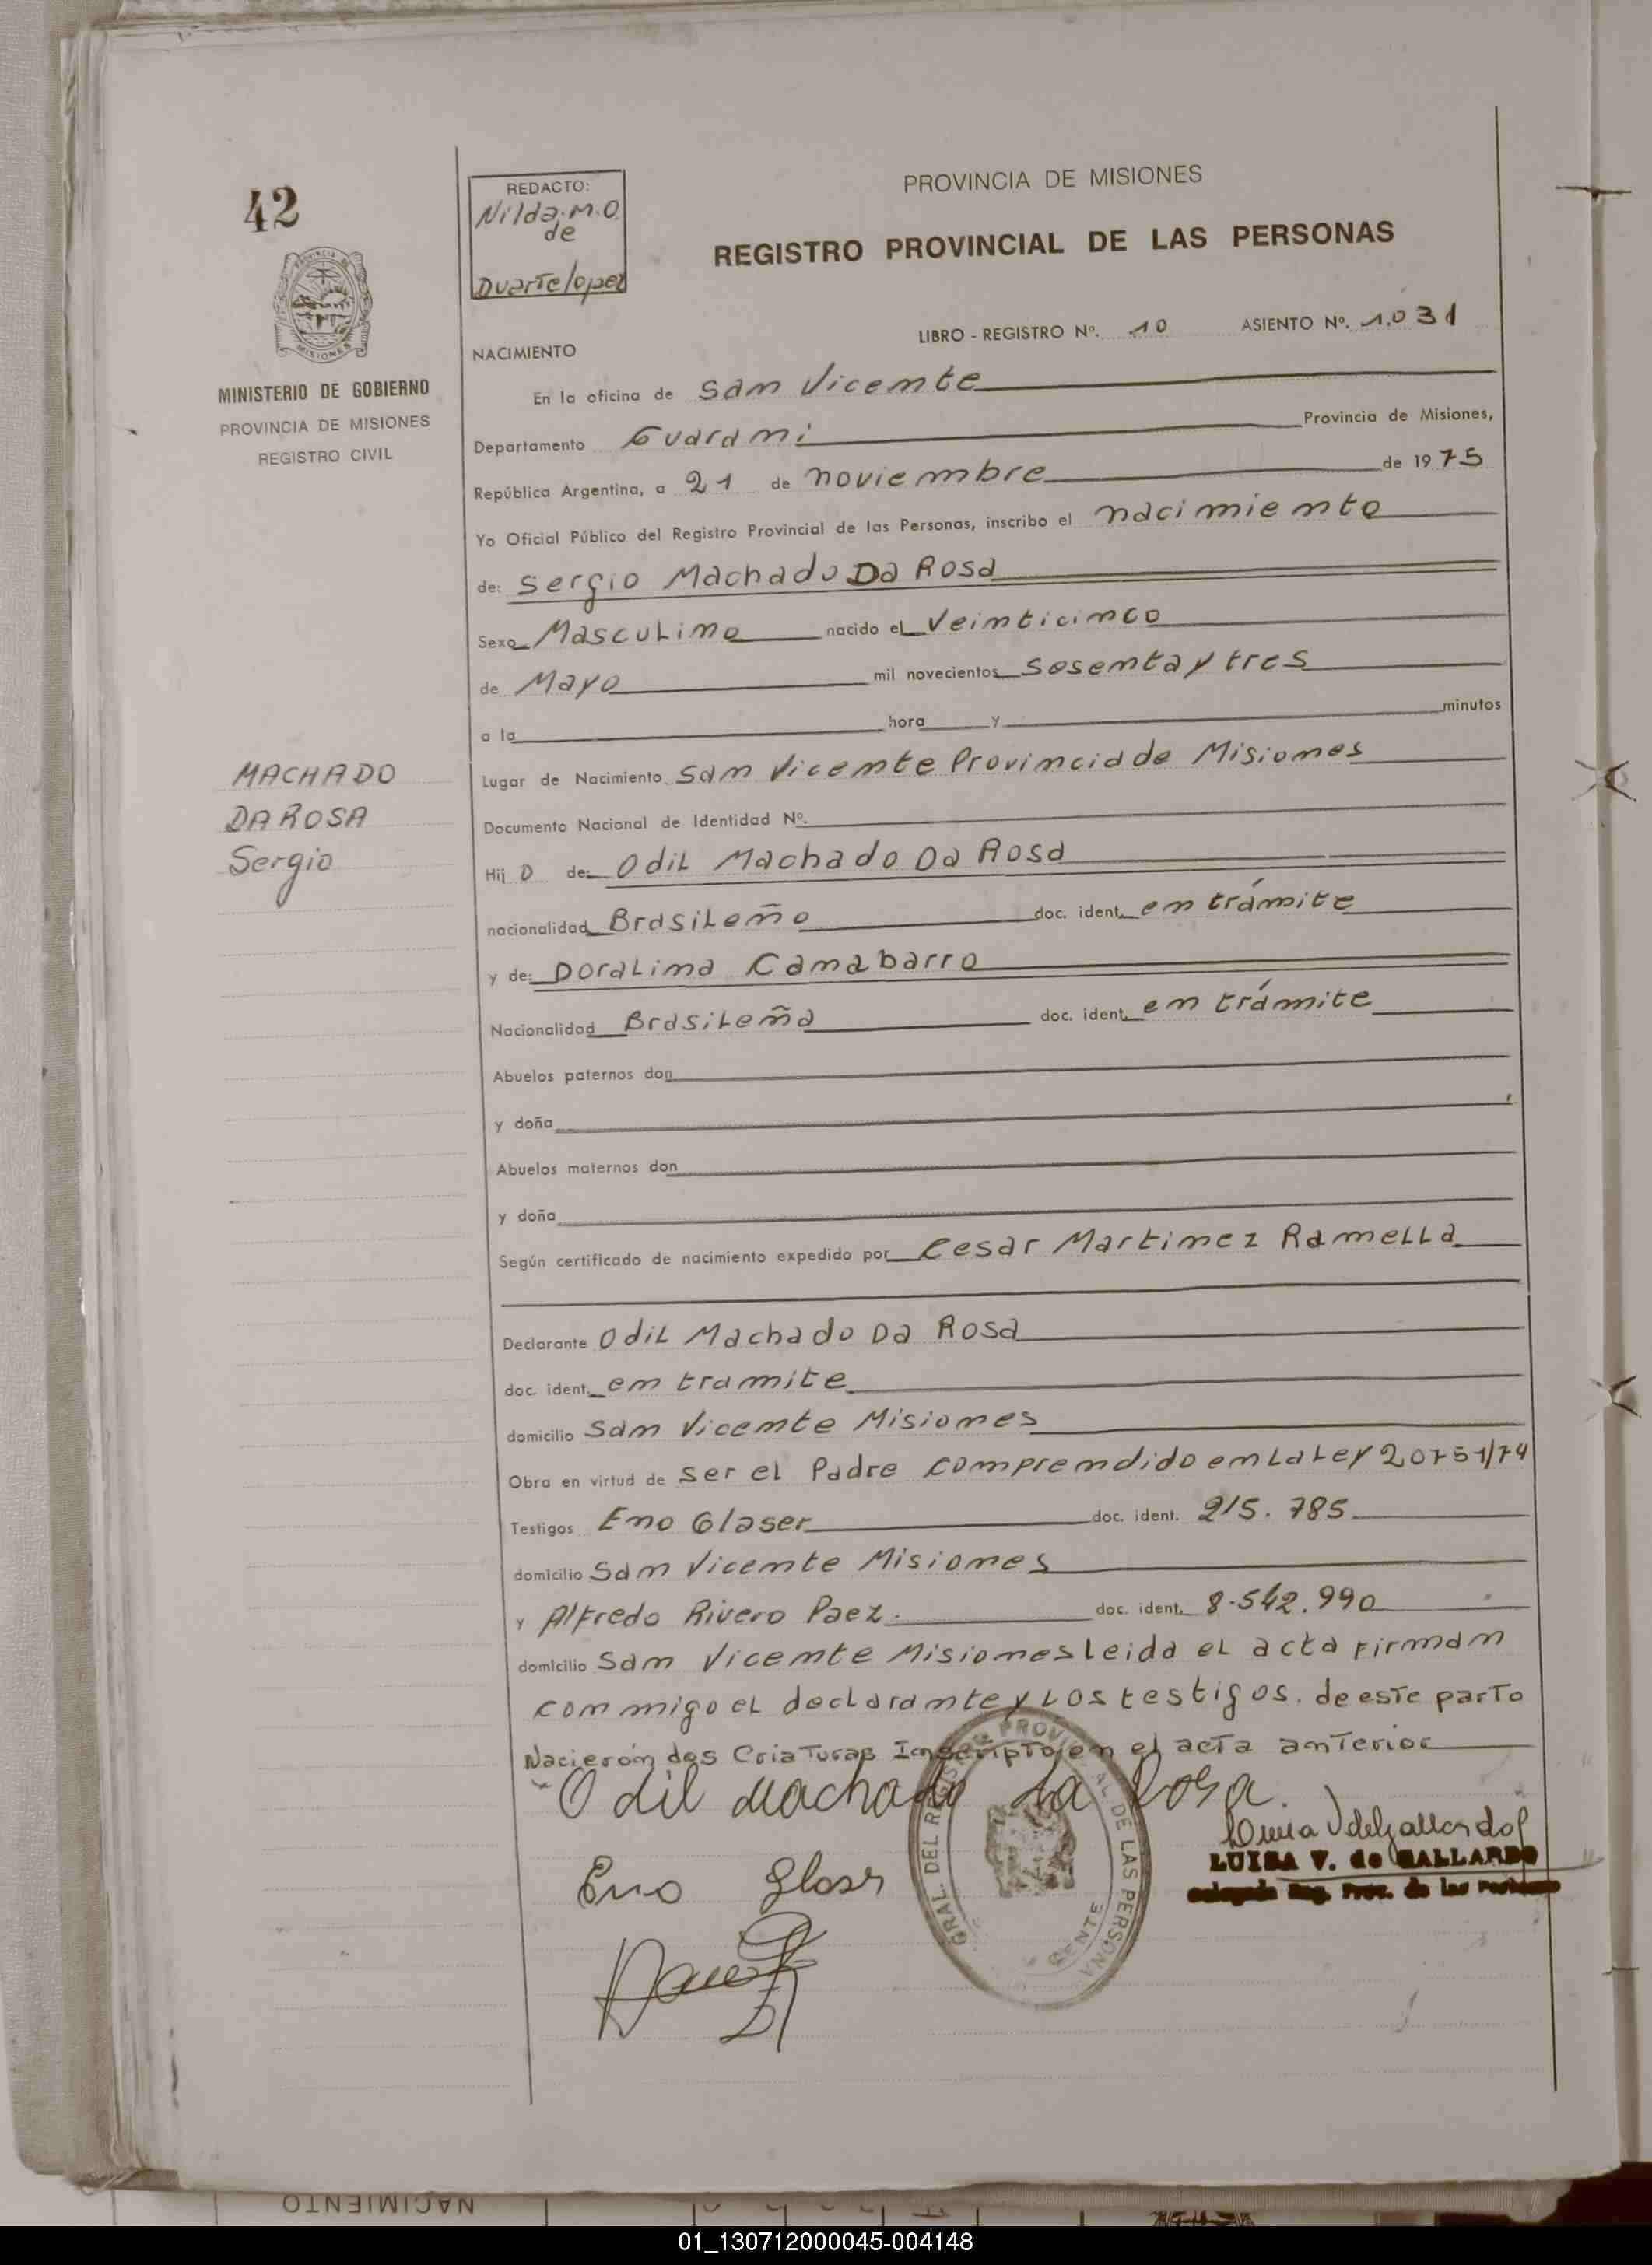 42
REDACTO:
Nilda.M.O.
de
Duarte lopez
PROVINCIA DE MISIONES
REGISTRO PROVINCIAL DE LAS PERSONAS
MINISTERIO DE GOBIERNO
PROVINCIA DE MISIONES
REGISTRO CIVIL
LIBRO - REGISTRO Nº. 10 ASIENTO Nº. 1.031
NACIMIENTO
En la oficina de San Vicente
Departamento Guarani Provincia de Misiones,
República Argentina, a 21 de noviembre de 1975
Yo Oficial Público del Registro Provincial de las Personas, inscribo el nacimiento
de: Sergio Machado Da Rosa
Sexo Masculino nacido el Veinticinco
de Mayo mil novecientos Sesenta y tres
a la hora y minutos
MACHADO
DA ROSA
Sergio
Lugar de Nacimiento San Vicente Provincia de Misiones
Documento Nacional de Identidad Nº.
Hij o de: Odil Machado Da Rosa
nacionalidad Brasileño doc. ident. en trámite
y de: Doralina Canabarro
Nacionalidad Brasileña doc. ident. en trámite
Abuelos paternos don
y doña
Abuelos maternos don
y doña
Según certificado de nacimiento expedido por Cesar Martinez Ramella
Declarante Odil Machado Da Rosa
doc. ident. en tramite
domicilio San Vicente Misiones
Obra en virtud de ser el Padre comprendido en la Ley 20751/74
Testigos Eno Glaser doc. ident. 215.785
domicilio San Vicente Misiones
y Alfredo Rivero Paez. doc. ident. 8.542.990
domicilio San Vicente Misiones leida el acta firman
conmigo el declarante y los testigos. de este parto
Nacierón dos Criaturas Inscripto en el acta anterior
Odil Machado da Rosa.
Eno Glaser
LUISA V. de GALLARDO
Delegada Reg. Prov. de las Personas
GRAL. DEL REGISTRO PROVINCIAL DE LAS PERSONA
CENTE
NACIMIENTO
01_130712000045-004148